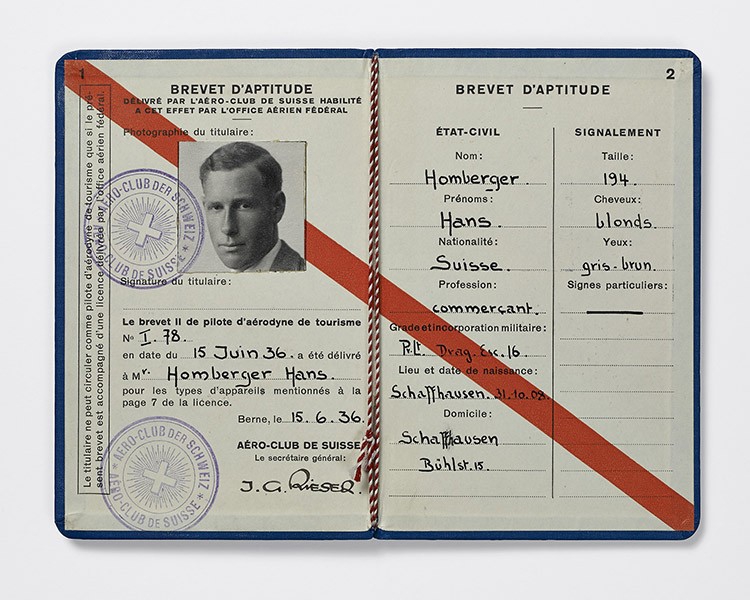 1
Le titulaire ne peut circuler comme pilote d'aérodyne de tourisme que si le pré-
sent brevet est accompagné d'une licence délivrée par l'office aérien fédéral.
BREVET D'APTITUDE
DÉLIVRÉ PAR L'AÉRO-CLUB DE SUISSE HABILITÉ
A CET EFFET PAR L'OFFICE AÉRIEN FÉDÉRAL
Photographie du titulaire:
AÉRO-CLUB DER SCHWEIZ
AÉRO-CLUB DE SUISSE
Signature du titulaire:
Le brevet II de pilote d'aérodyne de tourisme
No I. 78.
en date du 15 Juin 36. a été délivré
à Mr. Homberger Hans.
pour les types d'appareils mentionnés à la
page 7 de la licence.
Berne, le 15. 6. 36.
AÉRO-CLUB DE SUISSE
Le secrétaire général:
AÉRO-CLUB DER SCHWEIZ
AÉRO-CLUB DE SUISSE
2
BREVET D'APTITUDE
ÉTAT-CIVIL
Nom:
Homberger.
Prénoms:
Hans.
Nationalité:
Suisse.
Profession:
commerçant.
Grade et incorporation militaire:
Drag. Esc. 16.
Lieu et date de naissance:
Schaffhausen. 31.10.08.
Domicile:
Schaffhausen
Bühlst. 15.
SIGNALEMENT
Taille:
194.
Cheveux:
blonds.
Yeux:
gris-brun.
Signes particuliers: